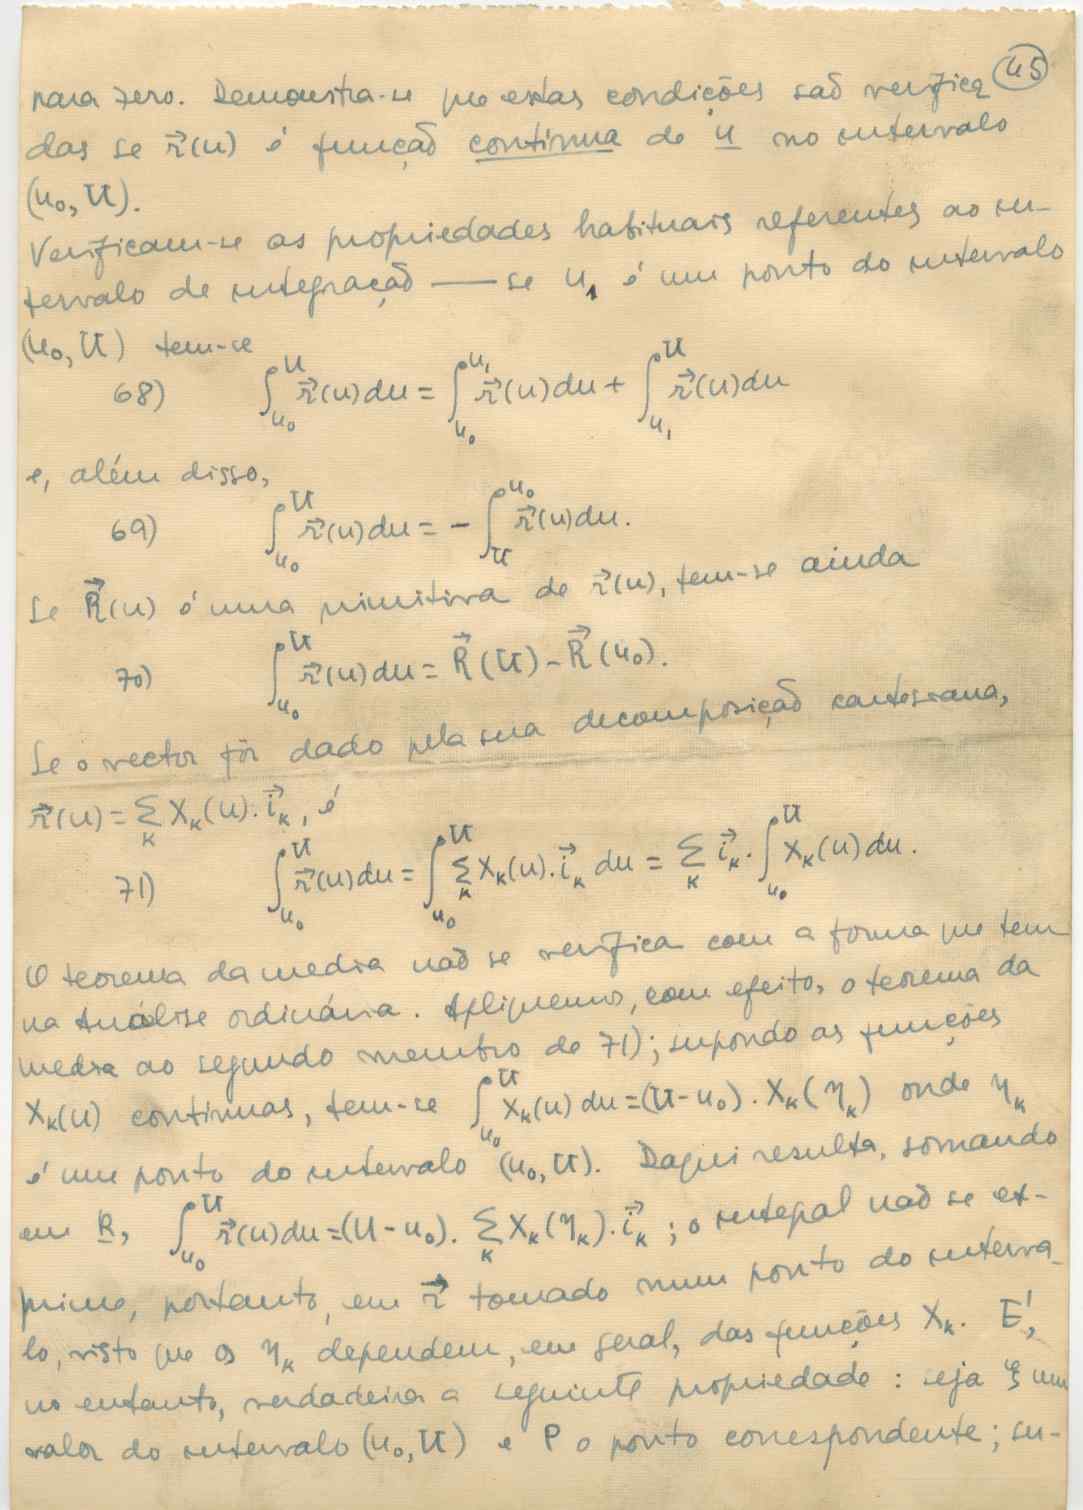 45
para zero. Demonstra-se que estas condições saõ verifica
das se r⃗(u) é funçaõ contínua de u no intervalo
(u₀, U).
Verificam-se as propriedades habituais referentes ao in-
tervalo de integraçaõ — se u₁ é um ponto do intervalo
(u₀, U) tem-se
68) ∫_{u₀}^{U} r⃗(u)du = ∫_{u₀}^{u₁} r⃗(u)du + ∫_{u₁}^{U} r⃗(u)du
e, além disso,
69) ∫_{u₀}^{U} r⃗(u)du = - ∫_{U}^{u₀} r⃗(u)du.
Se R⃗(u) é uma primitiva de r⃗(u), tem-se ainda
70) ∫_{u₀}^{U} r⃗(u)du = R⃗(U) - R⃗(u₀).
Se o vector fôr dado pela sua decomposiçaõ cartesiana,
r⃗(u) = Σ_k X_k(u). i⃗_k, é
71) ∫_{u₀}^{U} r⃗(u)du = ∫_{u₀}^{U} Σ_k X_k(u). i⃗_k du = Σ_k i⃗_k. ∫_{u₀}^{U} X_k(u)du.
O teorema da media naõ se verifica com a forma que tem
na Análise ordinária. Apliquemos, com efeito, o teorema da
media ao segundo membro de 71); supondo as funções
X_k(u) continuas, tem-se ∫_{u₀}^{U} X_k(u)du = (U-u₀). X_k(η_k) onde η_k
é um ponto do intervalo (u₀, U). Daqui resulta, somando
em k, ∫_{u₀}^{U} r⃗(u)du = (U-u₀). Σ_k X_k(η_k). i⃗_k ; o integral naõ se ex-
prime, portanto, em r⃗ tomado num ponto do interva-
lo, visto que os η_k dependem, em geral, das funções X_k. É,
no entanto, verdadeira a seguinte propriedade : seja ξ um
valor do intervalo (u₀, U) e P o ponto correspondente ; su-